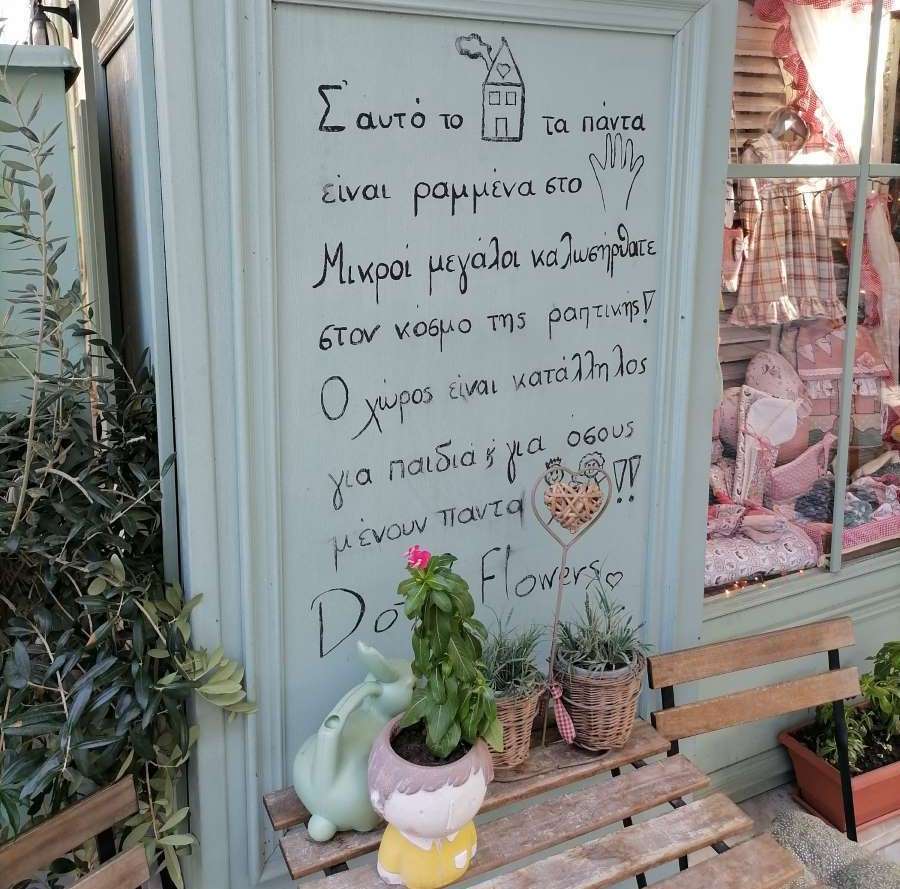 Σ' αυτό το τα πάντα
είναι ραμμένα στο
Μικροί μεγάλοι καλωσήρθατε
στον κόσμο της ραπτικής!
Ο χώρος είναι κατάλληλος
για παιδιά & για όσους
μένουν παντα !!
Flowers